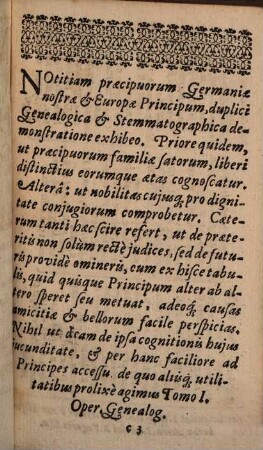 NOtitiam præcipuorum Germaniæ
nostræ & Europæ Principum, duplici
Genealogica & Stemmatographica de-
monstratione exhibeo. Priore quidem,
ut præcipuorum familiæ satorum, liberi
distinctius eorumque ætas cognoscatur.
Alterâ: ut nobilitas cujusq; pro digni-
tate conjugiorum comprobetur. Cæte-
rum tanti hæc scire refert, ut de præte-
ritis non solùm rectè judices, sed de futu-
ris providè omineris, cum ex hisce tabu-
lis, quid quisque Principum alter ab al-
tero speret seu metuat, adeoq; causas
amicitiæ & bellorum facile perspicias.
Nihil ut dicam de ipsa cognitionis hujus
jucunditate, & per hanc faciliore ad
Principes accessu. de quo aliisq; utili-
tatibus prolixè agimus Tomo I.
Oper. Genealog.
c 3